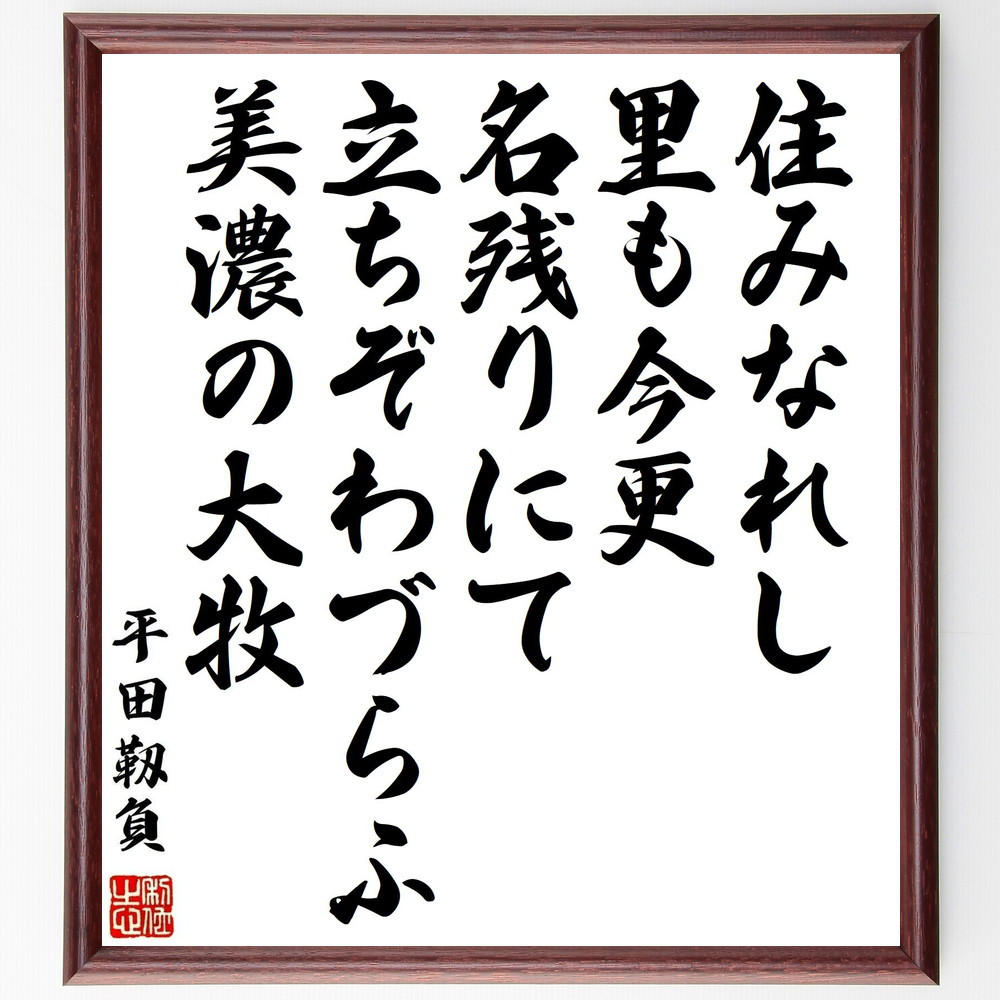 住みなれし
里も今更
名残りにて
立ちぞわづらふ
美濃の大牧
平田靱負